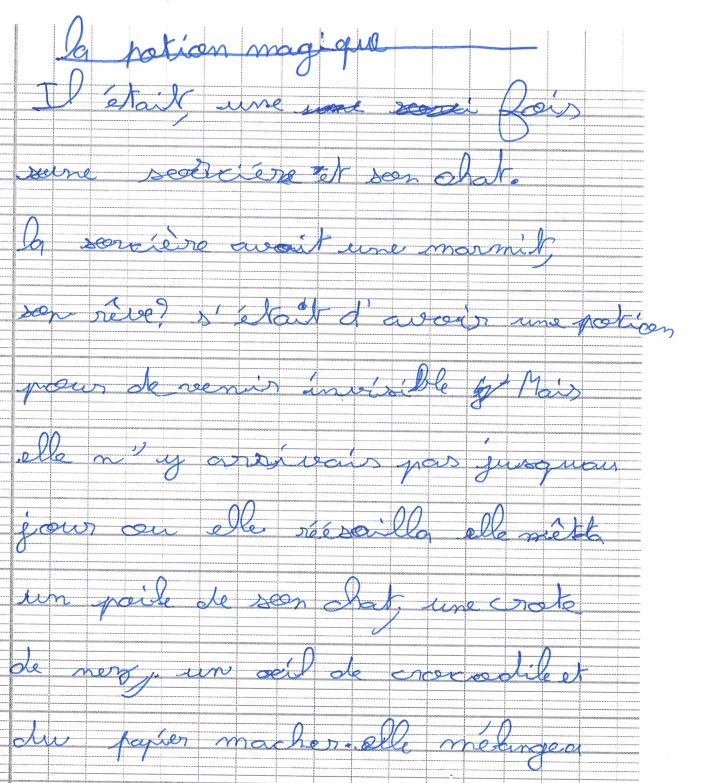 la potion magique
Il était, une fois
une sorcière et son chat.
la sorcière avait une marmit,
son rêve? s'était d'avoir une potion
pour de venir invisible Mais
elle n'y arrivais pas jusquau
jour ou elle réésailla elle mêtta
un poile de son chat, une crote
de nez, un oeil de crocodile et
du papier macher. elle mélangea